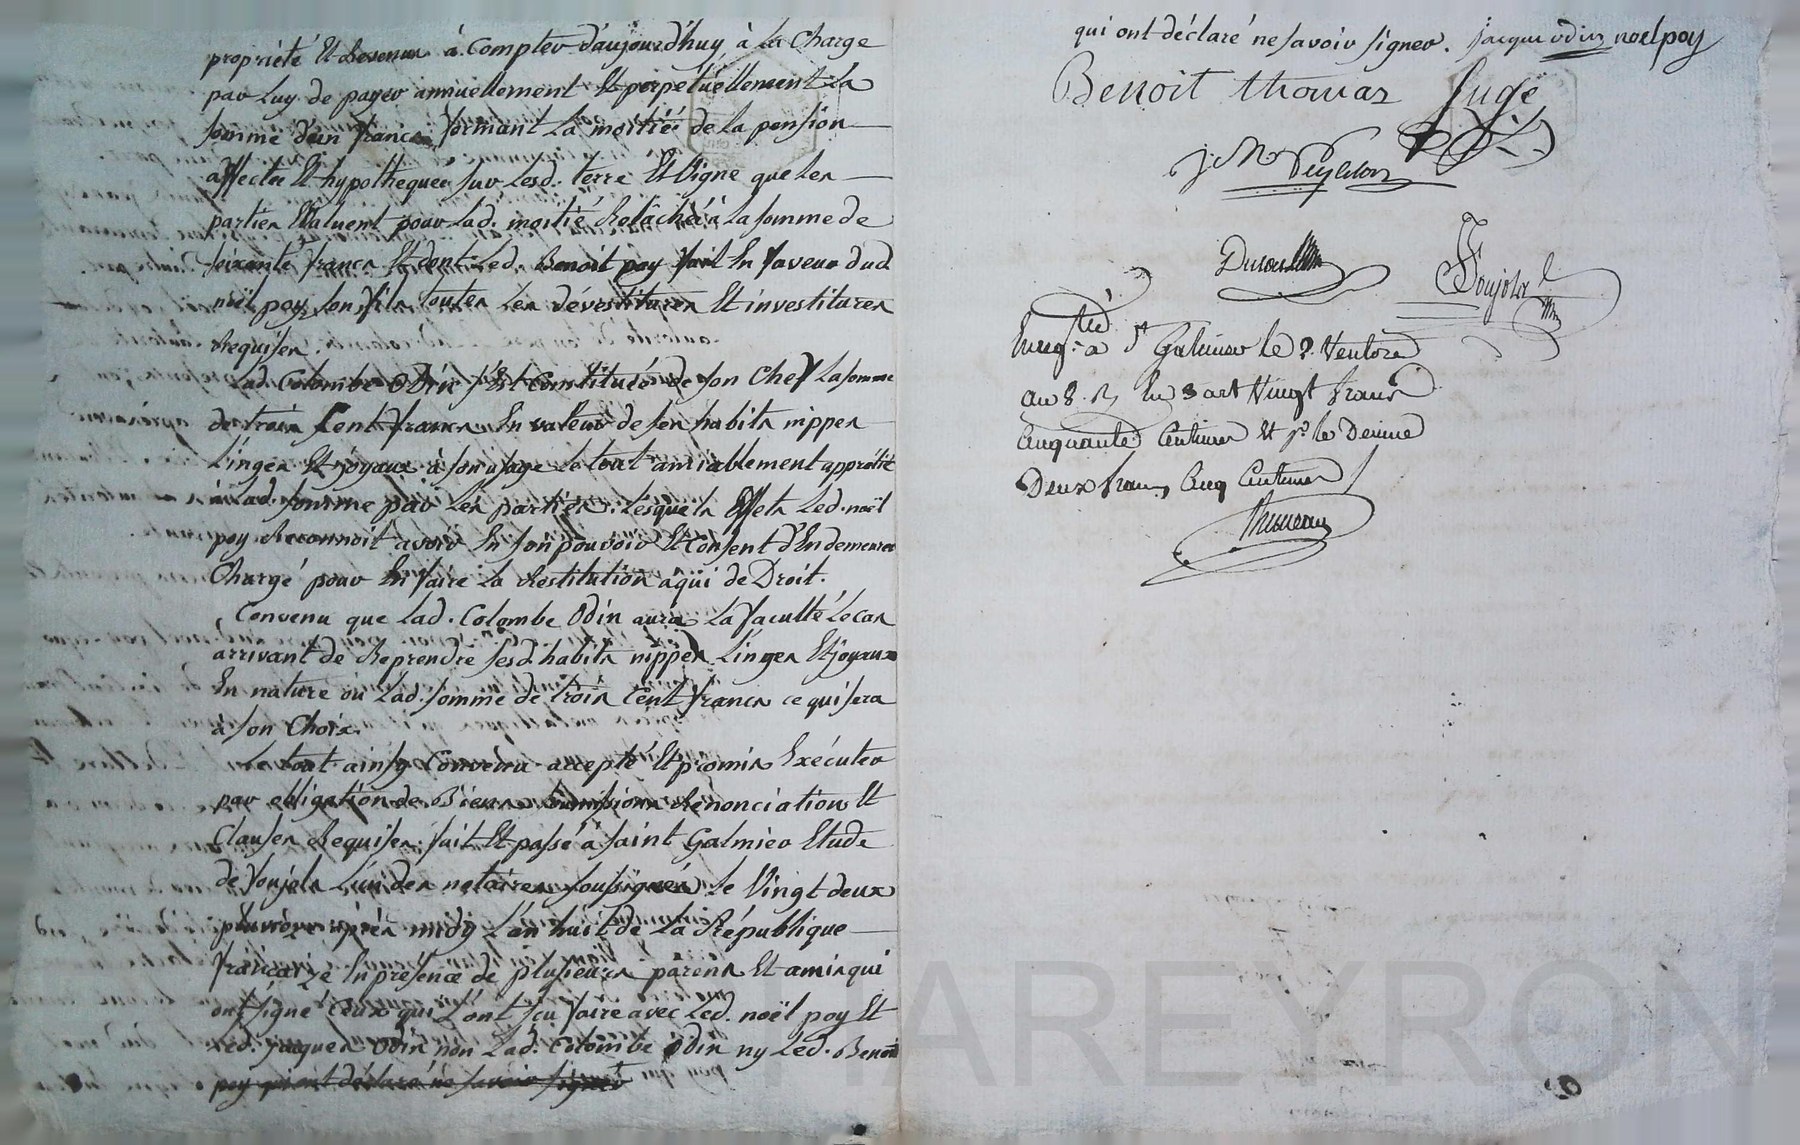 propriété Et Revenu à Compter d'aujourd'huy à la Charge
par Luy de payer annuellement Et perpétuellement La
somme d'un franc formant La moitié de la pension
affectée Et hypothequée sur Lesd. terre Et Vigne que Les
parties Evaluent pour Lad. moitié Relâchée à La somme de
soixante francs Et dont Led. Benoit poy fait En faveur dud.
noël poy son fils toutes Les dévestitures Et investitures
Requises.
Lad. Colombe Odin s'Est Constituée de son Chef La somme
de trois Cent francs En valeur de ses habits nippes
Linges Et joyaux à son usage Le tout amiablement apprétié
à Lad. somme par Les parties. Lesquels Effets Led. noël
poy Reconnoit avoir En son pouvoir Et Consent d'En demeurer
Chargé pour En faire La Restitution à qui de Droit.
Convenu que Lad. Colombe Odin aura La faculté Le cas
arrivant de Reprendre sesd. habits nippes Linges Et joyaux
En nature ou Lad. somme de trois Cent francs ce qui sera
à son Choix.
Le tout ainsy Convenu accepté Et promis Exécuter
par obligation de Biens soumissions Renonciations Et
Clauses Requises. fait Et passé à saint Galmier Etude
de foujols L'un des notaires soussignés Le Vingt deux
pluviose après midy L'an huit de La République
françaize En présence de plusieurs parens Et amis qui
ont signé Ceux qui L'ont sçu faire avec Led. noël poy Et
Led. Jaques Odin non Lad. Colombe Odin ny Led. Benoit
poy qui ont déclaré ne savoir signer
qui ont déclaré ne savoir signer. jacque odin noel poy
Benoit thomas
foujols
Enreg.té à St Galmier le 2 Ventose
an 8. En 3 art Vingt francs
Cinquante Centimes Et pr. le Decime
Deux francs Cinq Centimes
HAREYRON